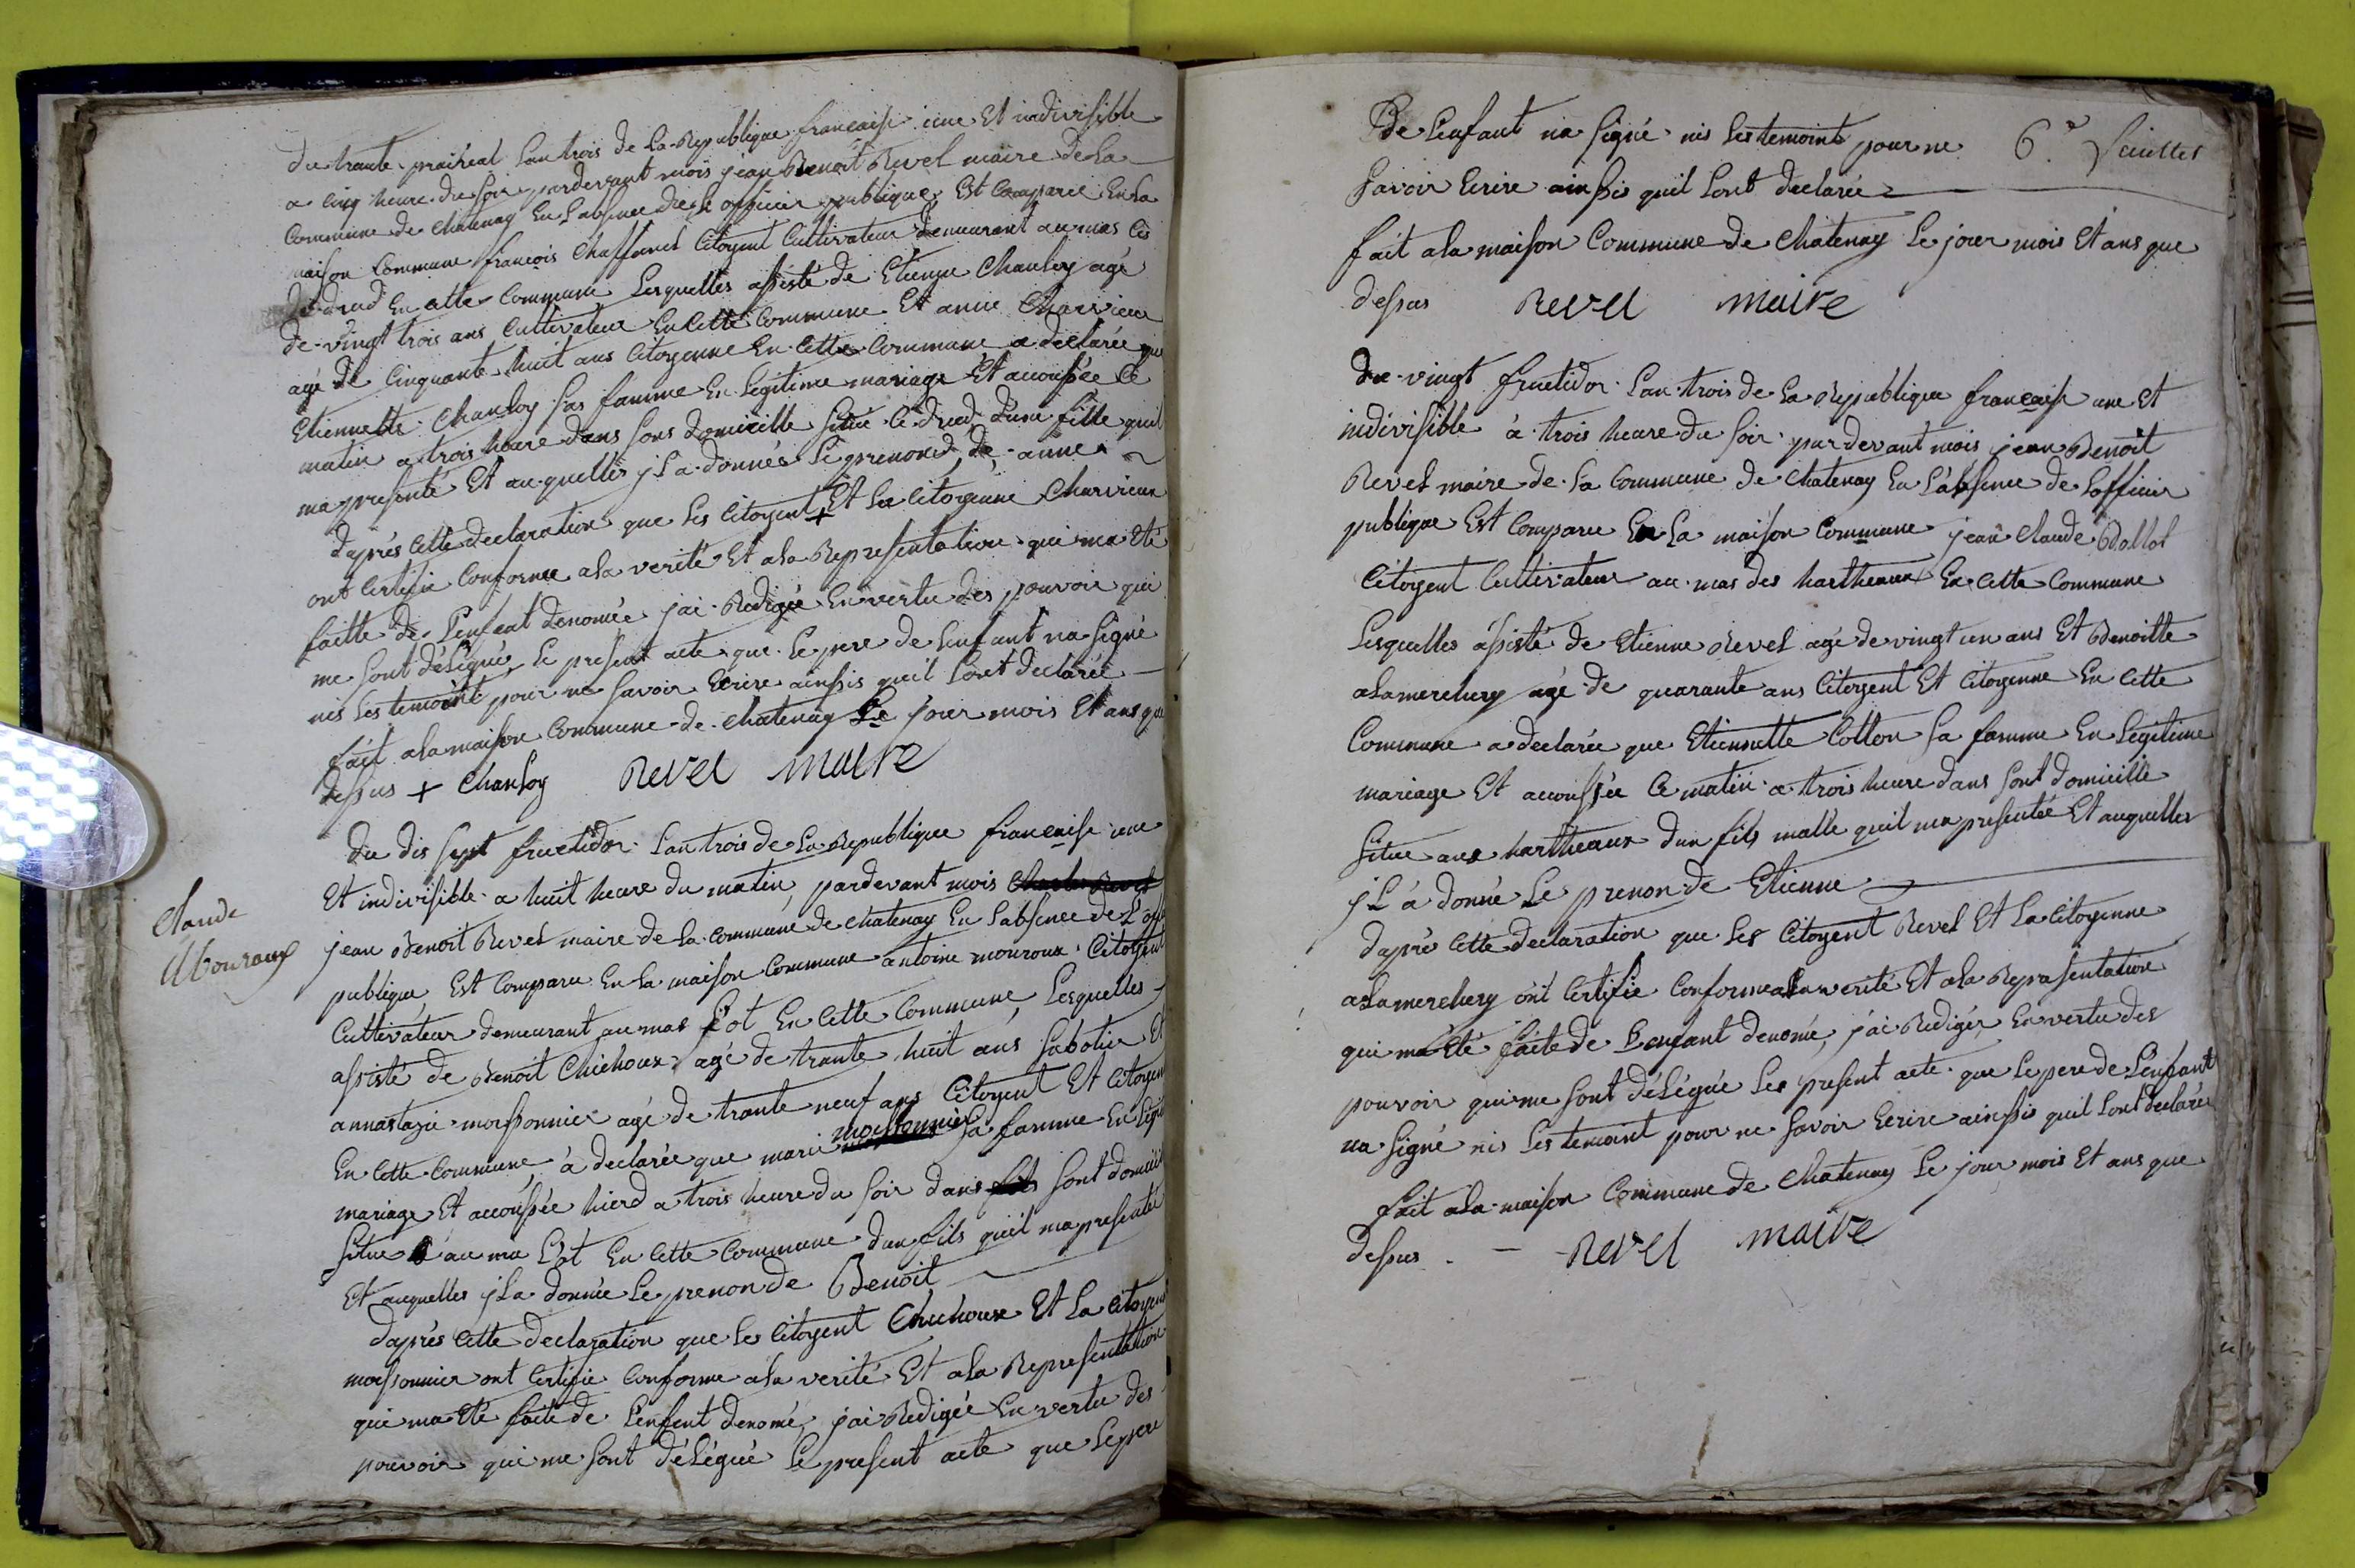 du trante prairéal Lan trois de La Republique francaise une Et indivisible
a cinq heure du soir pardevant mois jean Benoit Revel maire de La
Commune de chatenay En L'absence de officier publique Est Comparée En La
maison Commune francois Chaffanel Citoyent Cultivateur demeurant au mas
En cette Commune Lesquelles assisté de Etienne Chanloy agé
de vingt trois ans Cultivateur En Cette Commune Et anne Charvieux
agé de Cinquante huit ans Citoyenne En Cette Commune a declarée que
Etiennette Chanloy Sas famme En Legitime mariage Et accousée Ce
matin a trois heure dans sons domicille situé d'une fille quil
ma presenté Et auquelles jLa donnés Le prenond de anne
daprés Cette declaration que Les Citoyent + Et La Citoyenne Charvieux
ont Certifie Conforme ala verité Et ala Representation qui ma Eté
faitte de L'enfeat denomée jai Redigée En vertu des pouvoir qui
me sont déLégués Le present acte que Le pere de Lenfant na signé
nis Les temoint pour ne savoir Ecrire ainssis queil Lont declarée
fait ala maison Commune de chatenay Le jour mois Et ans que
dessus + Chanloy Revel maire
Claude
Mouroux
du dis sept fructidor Lan trois de La Republique francaise une
Et indivisible a huit heure du matin, pardevant mois
jean Benoit Revel maire de La Commune de chatenay En Labsence de L'off
publique Est Comparu En La maison Commune antoine mouroux Citoyent
Cultivateur demeurant au mas L'ot En Cette Commune, Lesquelles
assisté de Benoit Chichoux agé de trante huit ans sabotier Et
annastazie moissonnier agé de trante neuf ans Citoyent Et Citoyen
En Cette Commune à declarée que marie moissonnier sa famme En Legit
mariage Et accousée hierd a trois heure du soir dans sont domicill
situe au ma L'ot En Cette Commune d'un fils qu'il ma presenté
Et auquelles jLa donnée Le prenon de Benoit
daprés Cette declaration que Les Citoyent Chichoux Et La Citoyen
moissonnier ont Certifie Conforme ala verité Et ala Representation
qui ma Eté faite de L'enfent denomé, jai Redigée En vertu des
pouvoir qui me sont déLégué Le present acte que Le pere
De L'enfant na signé nis Les temoint pour ne
savoir Ecrire ainssis quil Lont declarée
6.e feuillet
fait ala maison Commune de Chatenay Le jour mois Et ans que
dessus Revel maire
du vingt fructidor Lan trois de La Republique francaise une Et
indivisible à trois heure du soir pardevant mois jean Benoit
Revel maire de La Commune de Chatenay En L'absence de Lofficier
publique Est Comparu En La maison Commune jean Claude Ballot
Citoyent Cultivateur au mas des hartheaux En Cette Commune
Lesquelles assisté de Etienne Revel agé de vingt un ans Et Benoitte
alamerchery agé de quarante ans Citoyent Et Citoyenne En Cette
Commune a declarée que Etiennette Cotton sa famme En Legitime
mariage Et accousée Ce matin a trois heure dans sont domicille
situe aux hartheaux d'un fils malle quil ma presentée Et auquelles
jL à donné Le prenon de Etienne
daprè Cette declaration que Les Citoyent Revel Et La Citoyenne
alamerchery ont Certifie Conforme ala verité Et ala Representation
qui ma Eté faite de L'enfant denomé, jai Redigér En vertu des
pouvoir qui me sont déLégúe Les present acte que Le pere de L'enfant
na signé nis Les temoint pour ne savoir Ecrire ainssis quil Lont declarée
fait ala maison Commune de Chatenay Le jour mois Et ans que
dessus Revel maire